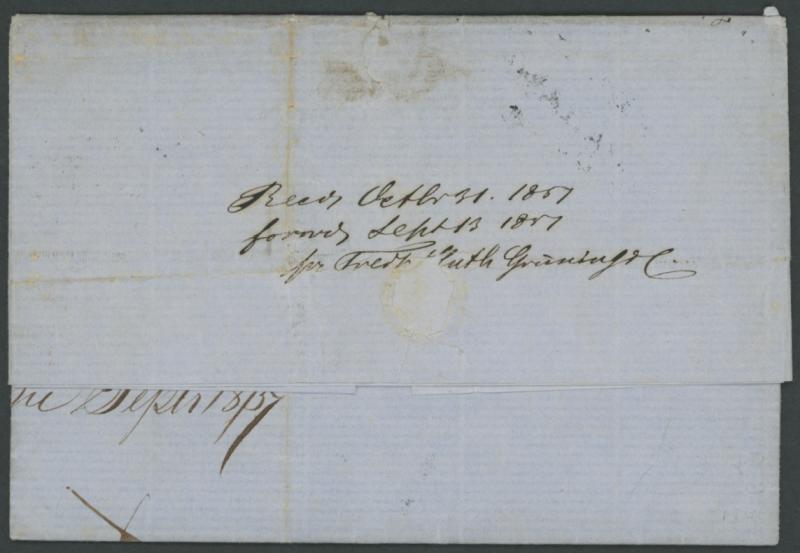 Recd Octbr 31. 1857
forwd Sept 13 1857
pr Fredk Huth Grüning & C
Septr 1857